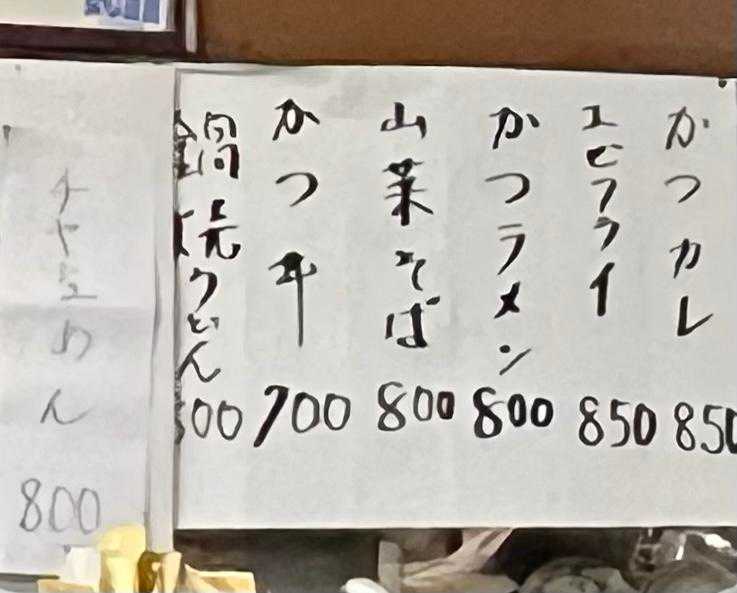 かつカレ
850
エビフライ
850
かつラメン
800
山菜そば
800
かつ丼
700
鍋焼うどん
00
チャシューめん
800